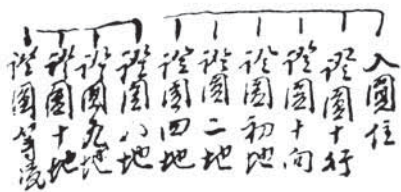 入圓住
證圓十行
證圓十向
證圓初地
證圓二地
證圓四地
證圓八地
證圓九地
證圓十地
證圓等覺